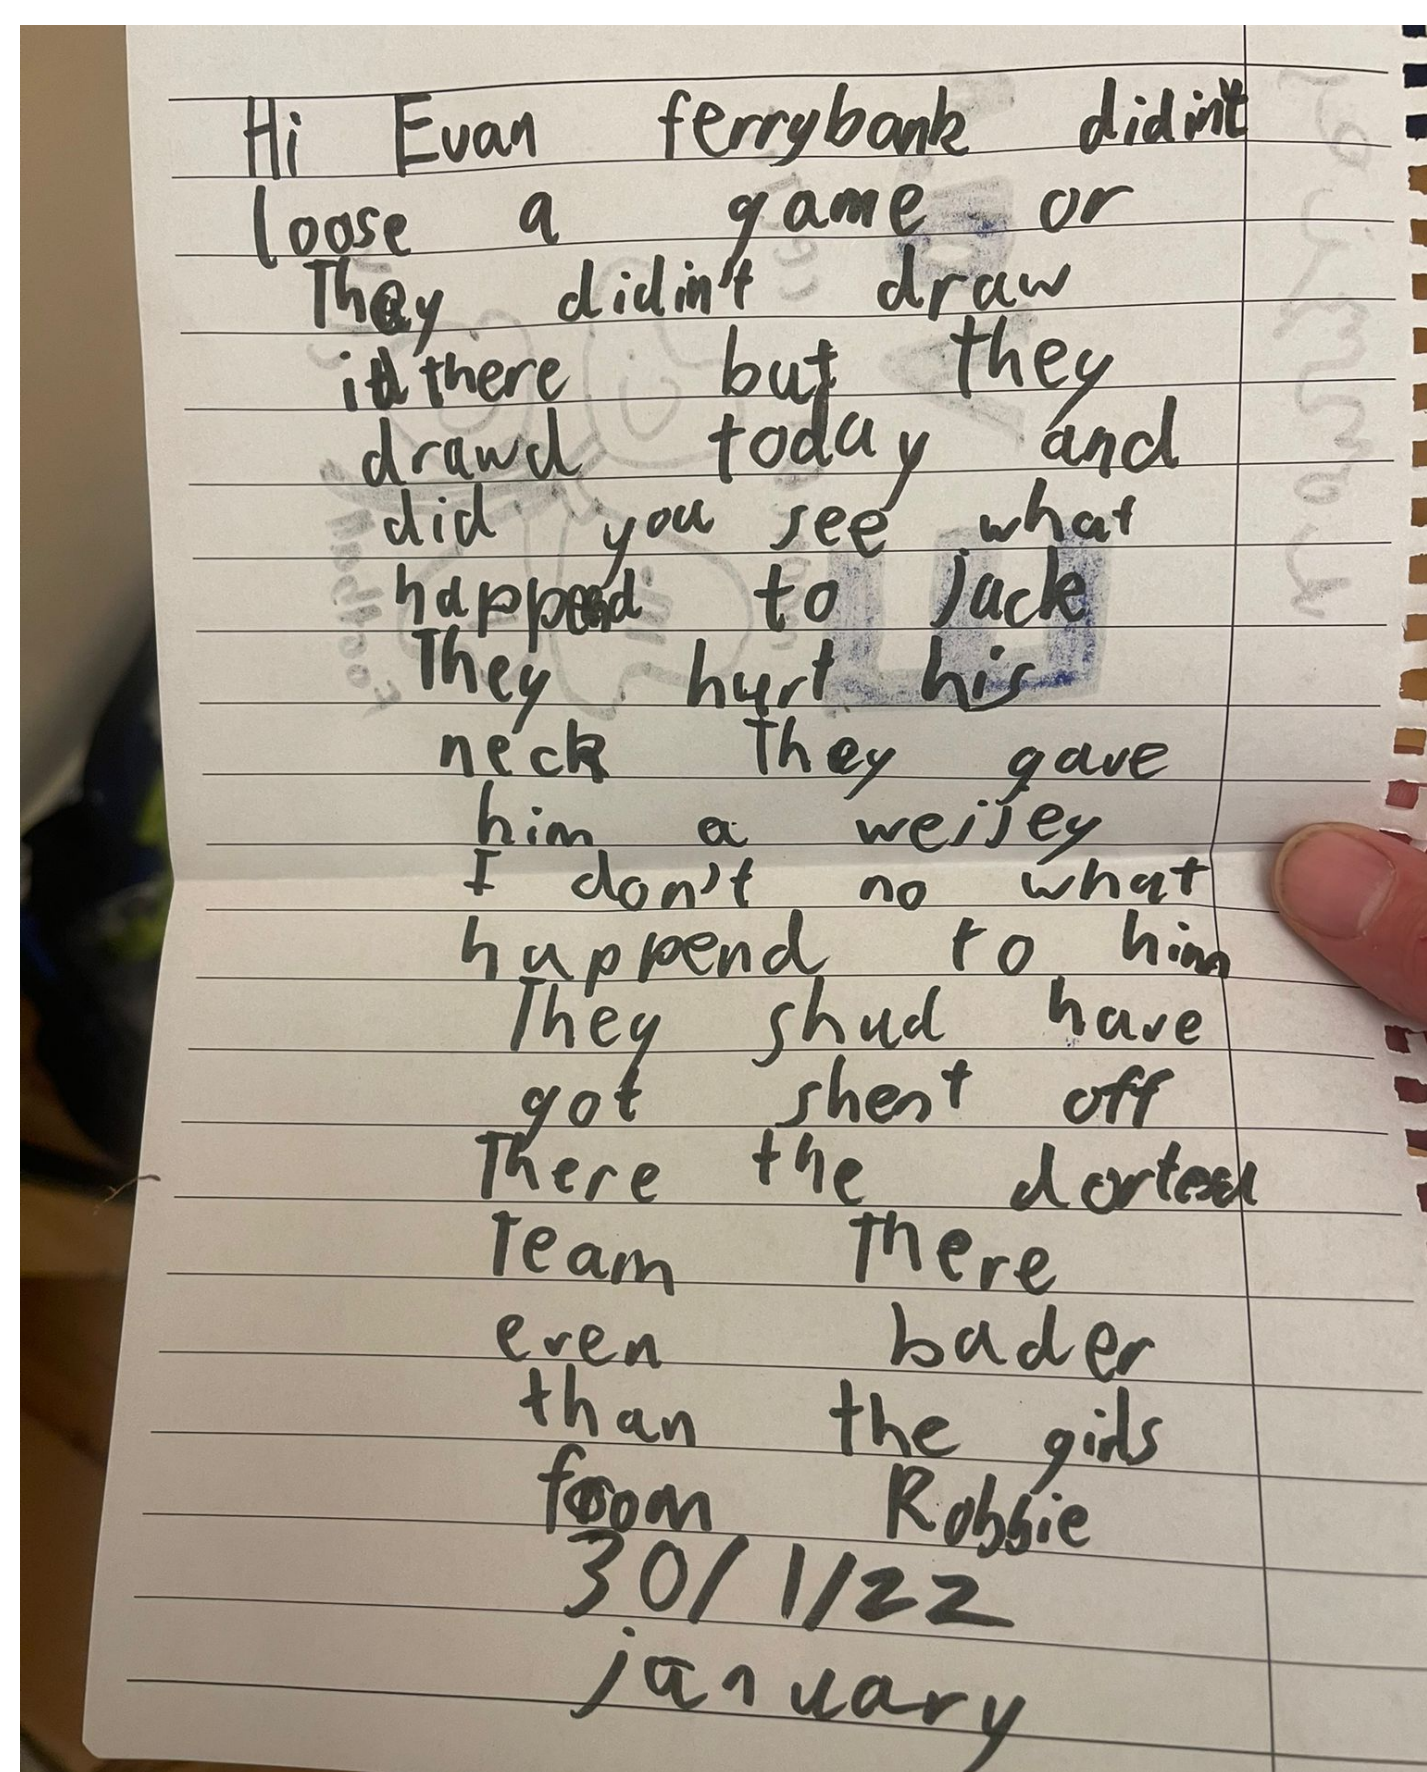 Hi Evan ferrybank didin't
loose a game or
They didin't draw
there but they
drawd today and
did you see what
happend to jack
They hurt his
neck They gave
him a weijey
I don't no what
happend to him
They shud have
got shent off
There the
Team There
even bader
than the girls
from Robbie
30/1/22
january